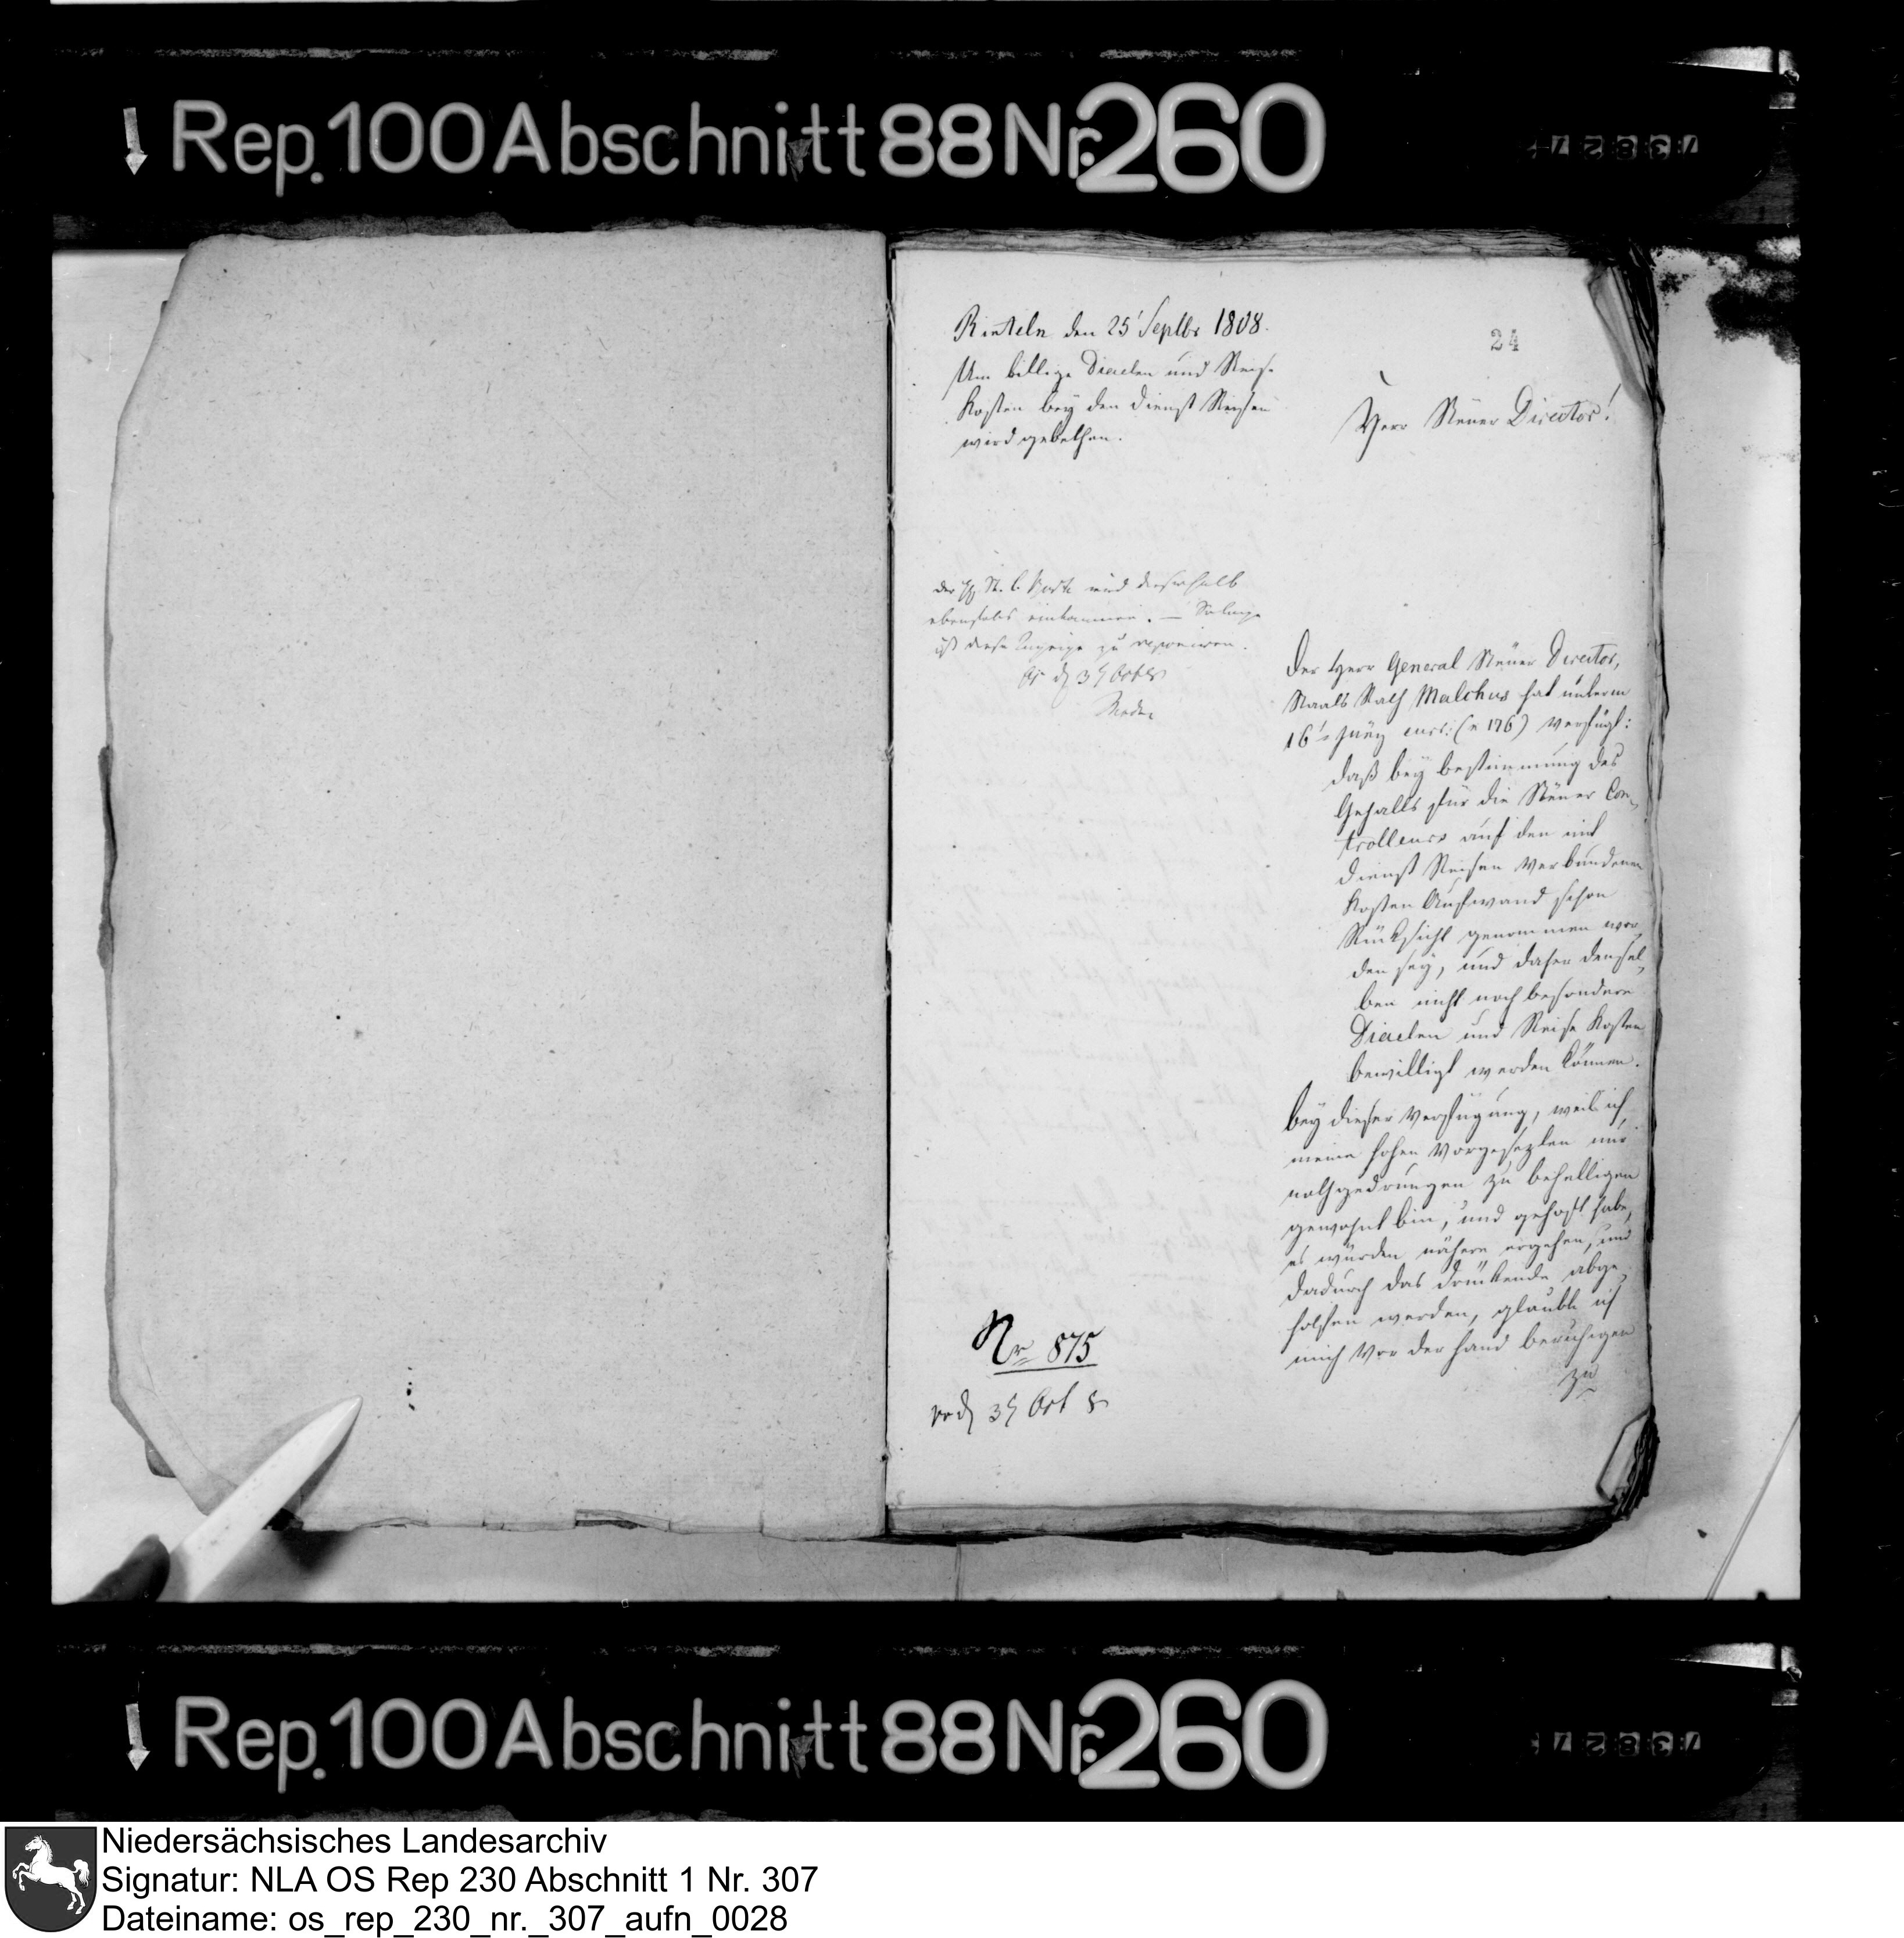 Rep. 100 Abschnitt 88 Nr. 260
Rinteln den 25t Septbr 1808.
Um billige Diaeten und Reise
Kosten bey den Dienst Reisen
wird gebethen.
24
Herr Steuer Director!
wird dieserhalb
ebenfalls einkommen. — Solange
ist diese Anzeige zu reponiren.
Der Herr General Steuer Director,
Staats Rath Malchus hat unterm
16t curr: (n 176) verfügt:
daß bey Bestimmung des
Gehalts für die Steuer Con,
trolleurs auf den mit
Dienst Reisen verbundenen
Kosten Aufwand schon
Rücksicht genommen wor,
den sey, und daher densel,
ben nicht noch besondere
Diaeten und Reise Kosten
bewilligt werden können.
Bey dieser Verfügung, weil ich
meine hohen Vorgesezten nur
nothgedrungen zu behelligen
gewohnt bin, und gehoft habe,
es würden nähere ergehen, und
dadurch das Drückende abge,
holfen werden, glaubte ich
mich vor der Hand beruhigen
zu
Nr 875
3t Oct 8
Rep. 100 Abschnitt 88 Nr. 260
Niedersächsisches Landesarchiv
Signatur: NLA OS Rep 230 Abschnitt 1 Nr. 307
Dateiname: os_rep_230_nr._307_aufn_0028